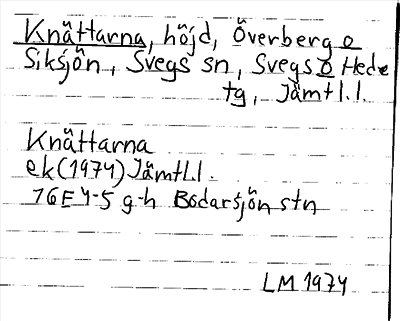 Knättarna, höjd, Överberg o
Siksjön, Svegs sn, Svegs o Hede
tg, Jämtl.l.
Knättarna
ek(1974) Jämtl.l.
16E 4-5 g-h Bodarsjön stn
LM 1974